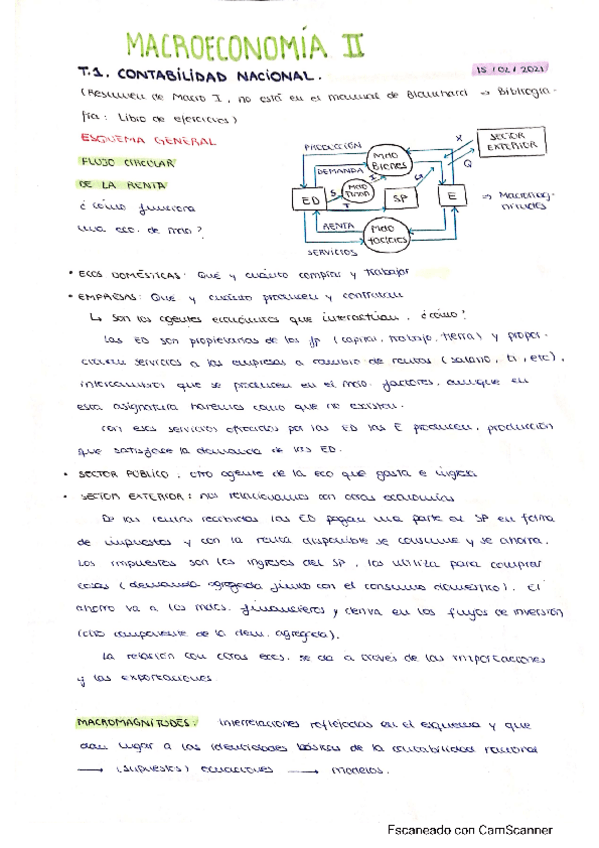 MACROECONOMÍA II
T.1. CONTABILIDAD NACIONAL.
15/02/2021
(Resumen de Macro I, no está en el manual de Blanchard => Bibliogra-
fía: Libro de ejercicios)
ESQUEMA GENERAL
FLUJO CIRCULAR
DE LA RENTA
¿cómo funciona
una eco. de mdo?
PRODUCCIÓN
DEMANDA
Mdo Bienes
SECTOR EXTERIOR
X
Q
G
I
S
T
ED
SP
E
=> Macromag-
nitudes
RENTA
Mdo factores
SERVICIOS
• ECOS DOMÉSTICAS: Qué y cuánto comprar y trabajar
• EMPRESAS: Qué y cuánto producen y contratan
↳ son los agentes económicos que interactúan, ¿cómo?
Las ED son propietarias de los fp (capital, trabajo, tierra) y propor-
cionan servicios a las empresas a cambio de rentas (salario, ti, etc),
intercambios que se producen en el mdo. factores, aunque en
esta asignatura haremos como que no existen.
Con esos servicios ofrecidos por las ED las E producen, producción
que satisface la demanda de las ED.
• SECTOR PÚBLICO, otro agente de la eco que gasta e ingresa
• SECTOR EXTERIOR: nos relacionamos con otras economías
De las rentas recibidas las ED pagan una parte al SP en forma
de impuestos y con la renta disponible se consume y se ahorra.
Los impuestos son los ingresos del SP, los utiliza para comprar
cosas (demanda agregada junto con el consumo doméstico). El
ahorro va a los mdos. financieros y deriva en los flujos de inversión
(otro componente de la dem. agregada).
La relación con otras ecos. se da a través de las importaciones
y las exportaciones.
MACROMAGNITUDES: interrelaciones reflejadas en el esquema y que
dan lugar a las identidades básicas de la contabilidad nacional
→ (supuestos) ecuaciones → modelos.
Escaneado con CamScanner